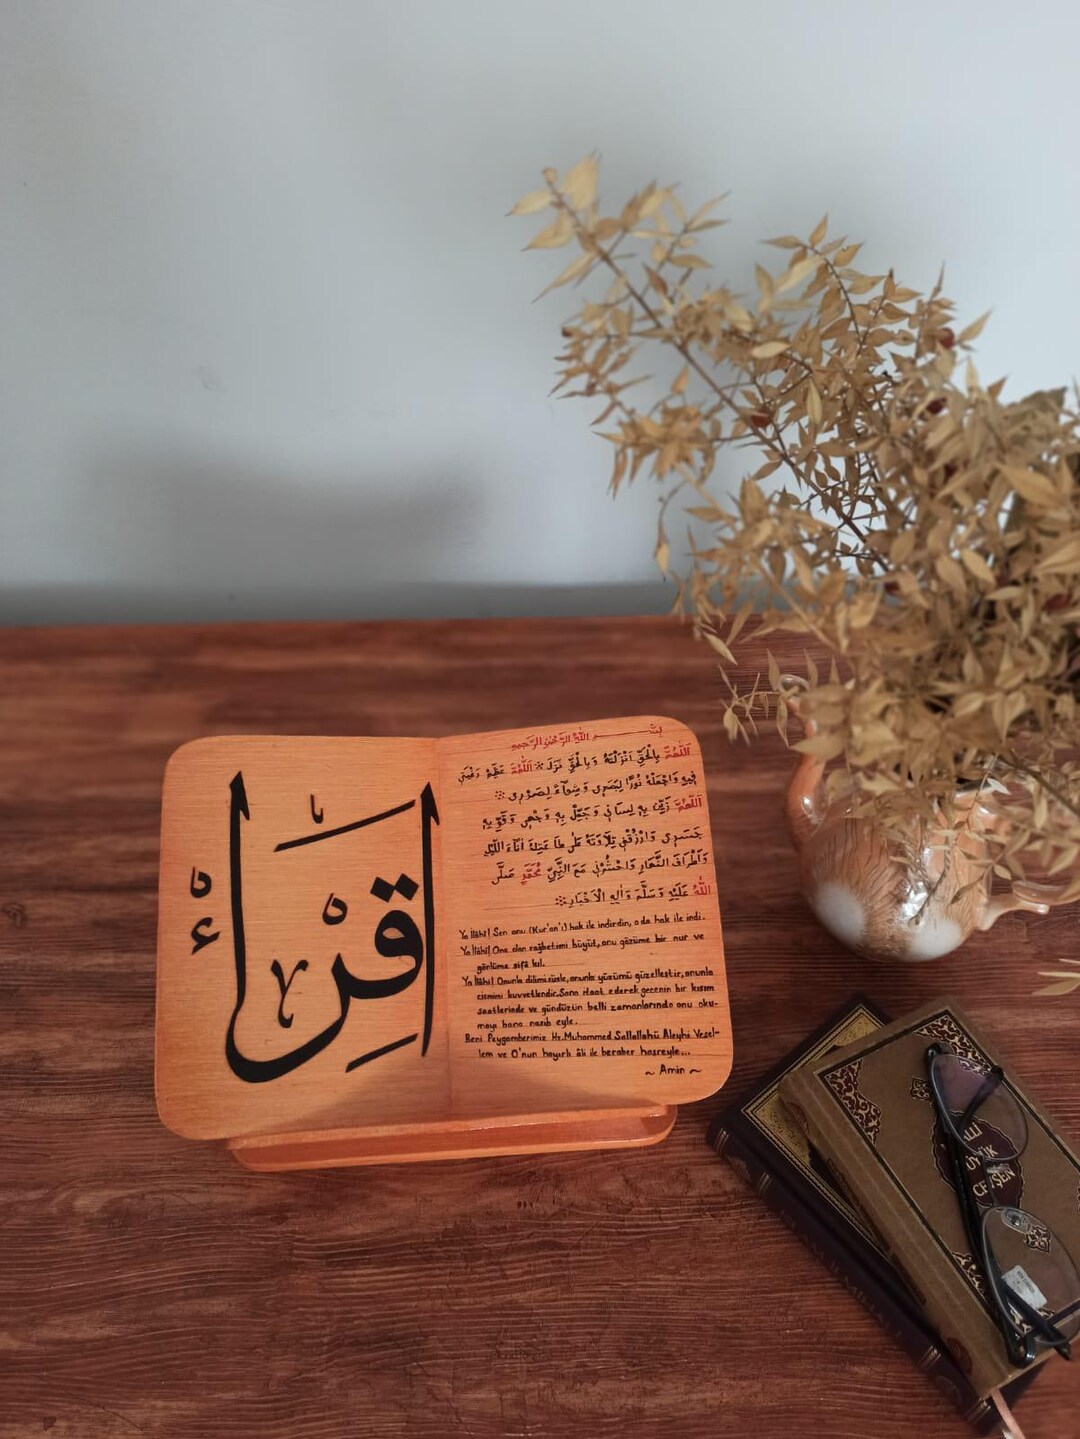 اقرأ
بسم الله الرحمن الرحيم
اَللّٰهُمَّ بِالْحَقِّ اَنْزَلْتَهُ وَبِالْحَقِّ نَزَلَ ∴ اَللّٰهُمَّ عَظِّمْ رَغْبَتِي
فِيهِ وَاجْعَلْهُ نُورًا لِبَصَرِي وَشِفَاءً لِصَدْرِي ∴
اَللّٰهُمَّ زَيِّنْ بِهِ لِسَانِي وَجَمِّلْ بِهِ وَجْهِي وَقَوِّ بِهِ
جَسَدِي وَارْزُقْنِي تِلَاوَتَهُ عَلَى طَاعَتِكَ اٰنَاءَ اللَّيْلِ
وَاَطْرَافَ النَّهَارِ وَاحْشُرْنِي مَعَ النَّبِيِّ مُحَمَّدٍ صَلَّى
اللّٰهُ عَلَيْهِ وَسَلَّمَ وَاٰلِهِ الْاَخْيَارِ ∴
Ya İlâhi! Sen onu (Kur'an'ı) hak ile indirdin, o da hak ile indi.
Ya İlâhi! Ona olan rağbetimi büyüt, onu gözüme bir nur ve
gönlüme şifâ kıl.
Ya İlâhi! Onunla dilimi süsle, onunla yüzümü güzelleştir, onunla
cismimi kuvvetlendir. Sana itaat ederek gecenin bir kısım
saatlerinde ve gündüzün belli zamanlarında onu oku-
mayı bana nasib eyle.
Beni Peygamberimiz Hz. Muhammed Sallallahü Aleyhi Vesel-
lem ve O'nun hayırlı âli ile beraber haşreyle...
~ Amin ~